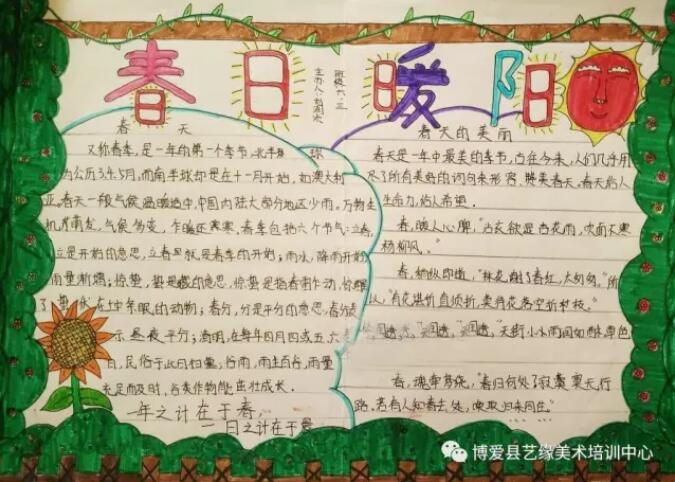 春日暖阳
班级六.三
主办人:
春天
又称春季,是一年的第一个季节,北半球
公历3年5月,而南半球却是在十一月开始,如澳大利
亚。春天一般气候温暖适中,中国内陆大部分地区少雨。万物生
机萌发,气候多变,乍暖还寒。春季包括六个节气:立春,
立是开始的意思,立春就是春季的开始;雨水,降雨开始
雨量渐增;惊蛰,蛰是藏的意思,惊蛰是指春雷乍动,惊醒
了蛰伏在土中冬眠的动物;春分,分是平分的意思,春分表
示昼夜平分;清明,在每年四月四或五六
日,民俗于此日扫墓;谷雨,雨生百谷,雨量
充足而及时,谷类作物能茁壮成长。
一年之计在于春,
一日之计在于晨
春天的美丽
春天是一年中最美的季节,古往今来,人们几乎用
尽了所有美好的词句来形容,赞美春天,春天给人
生命力,给人希望。
春,暖人心脾,"沾衣欲湿杏花雨,吹面不寒
杨柳风。"
春,稍纵即逝,"林花谢了春红,太匆匆。"所
以,"有花堪折直须折,莫待花落空折枝。"
天街小雨润如酥,草色
春,魂牵梦绕,"春归何处?寂寞无行
路。若有人知春去处,唤取归来同住。"
博爱县艺缘美术培训中心